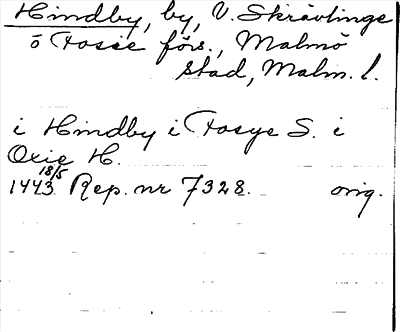 Hindby, by, V. Skrävlinge
o Fosie förs., Malmö
stad, Malm. l.
i Hindby i Fosye S. i
Oxie H.
1443 18/5 Rep. nr 7328. orig.